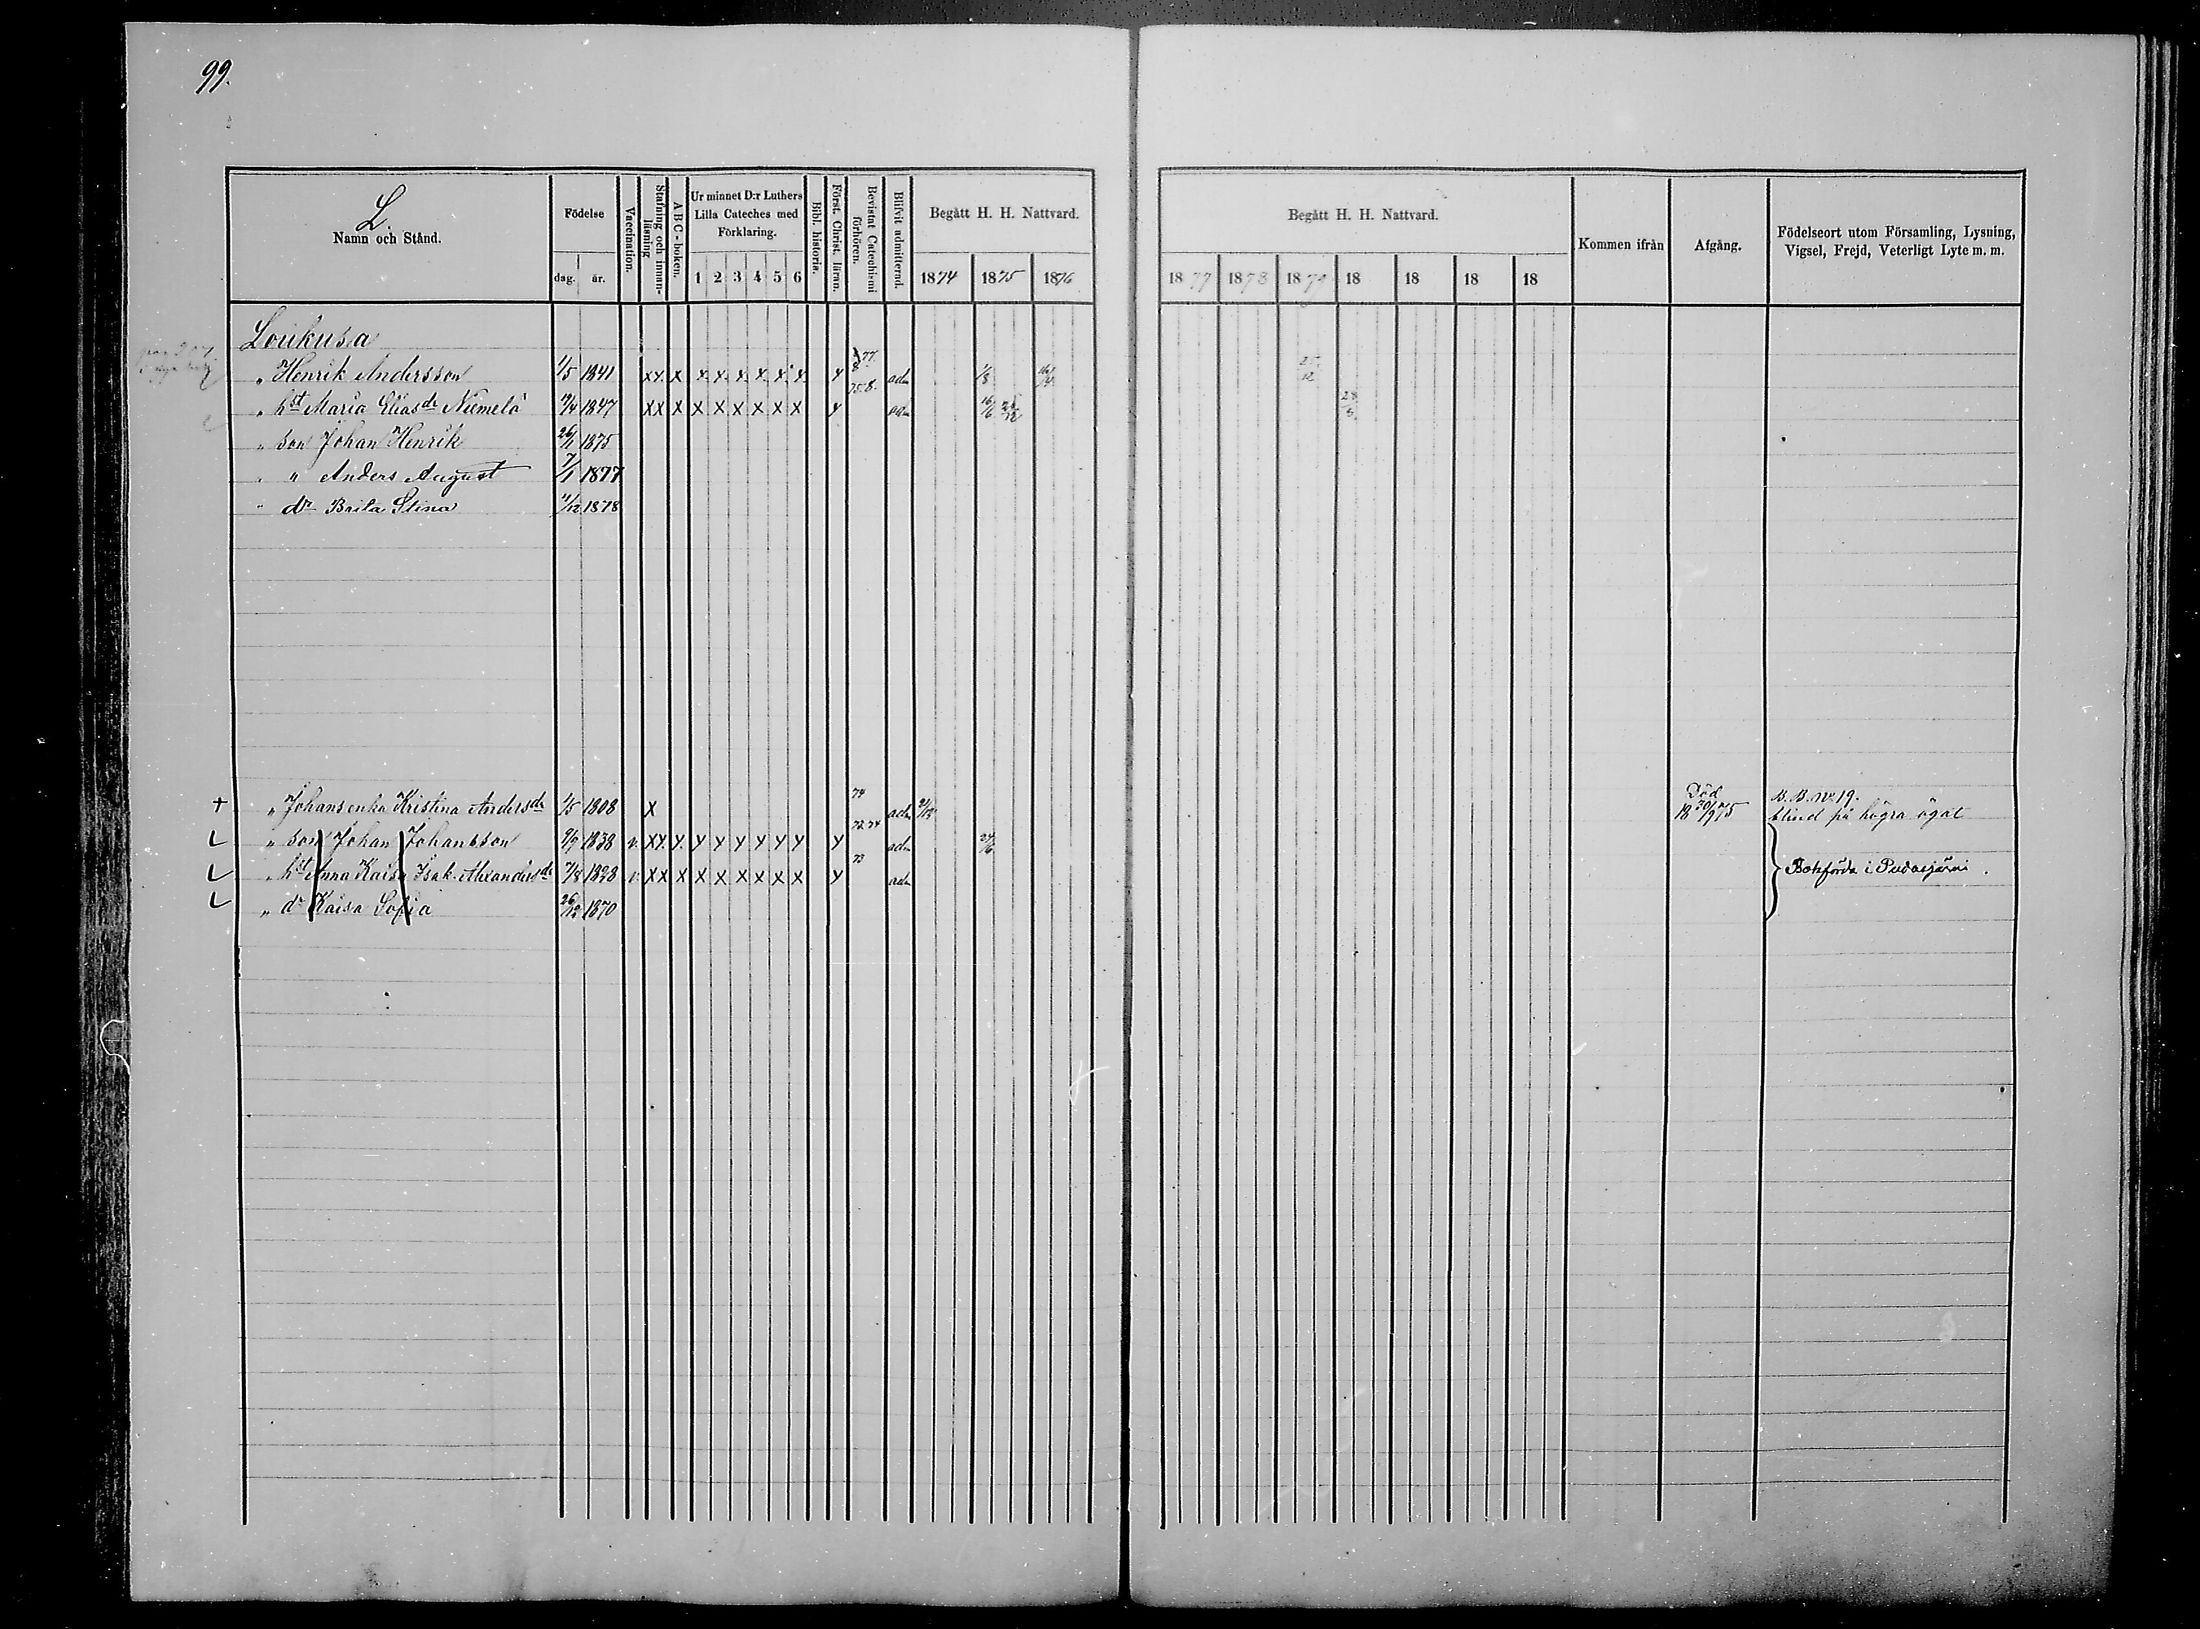 99.
L.
Namn och Stånd.
Födelse
dag. år.
Vaccination.
Stafning och innan-läsning
A B C - boken.
Ur minnet D:r Luthers
Lilla Cateches med
Förklaring.
1 2 3 4 5 6
Bibl. historia.
Först. Christ. lärn.
Bevistat Catechismi förhören.
Blifvit admitterad.
Begått H. H. Nattvard.
1874 1875 1876
Begått H. H. Nattvard.
1877 1878 1879 18 18 18 18
Kommen ifrån
Afgång.
Födelseort utom Församling, Lysning,
Vigsel, Frejd, Veterligt Lyte m. m.
Loukusa
" Henrik Andersson 1/5 1841 xx x x x x x x x x 77. 8 75.8. adm 1/8 16/4 25/12
" hst Maria Eliasdr Niemelä 1847 xx x x x x x x x x adm 16/6
" son Johan Henrik 26/1 1875
" " Anders August 7/1 1877
" dr Brita Stina 11/12 1878
+ " Johans enka Kristina Andersdr 1/5 1808 x 74 adm Död 18 30/9 75 B. B. No 19. blind på högra ögat
L " son Johan Johansson 9/9 1838 v. xx x x x x x x x x 73.74 adm 24/6
L " hst Anna Kaisa Isak Alexandersdr 7/8 1828 v. xx x x x x x x x x 73 adm Bokförda i Pudasjärvi.
L " dr Kaisa Sofia 26/12 1870